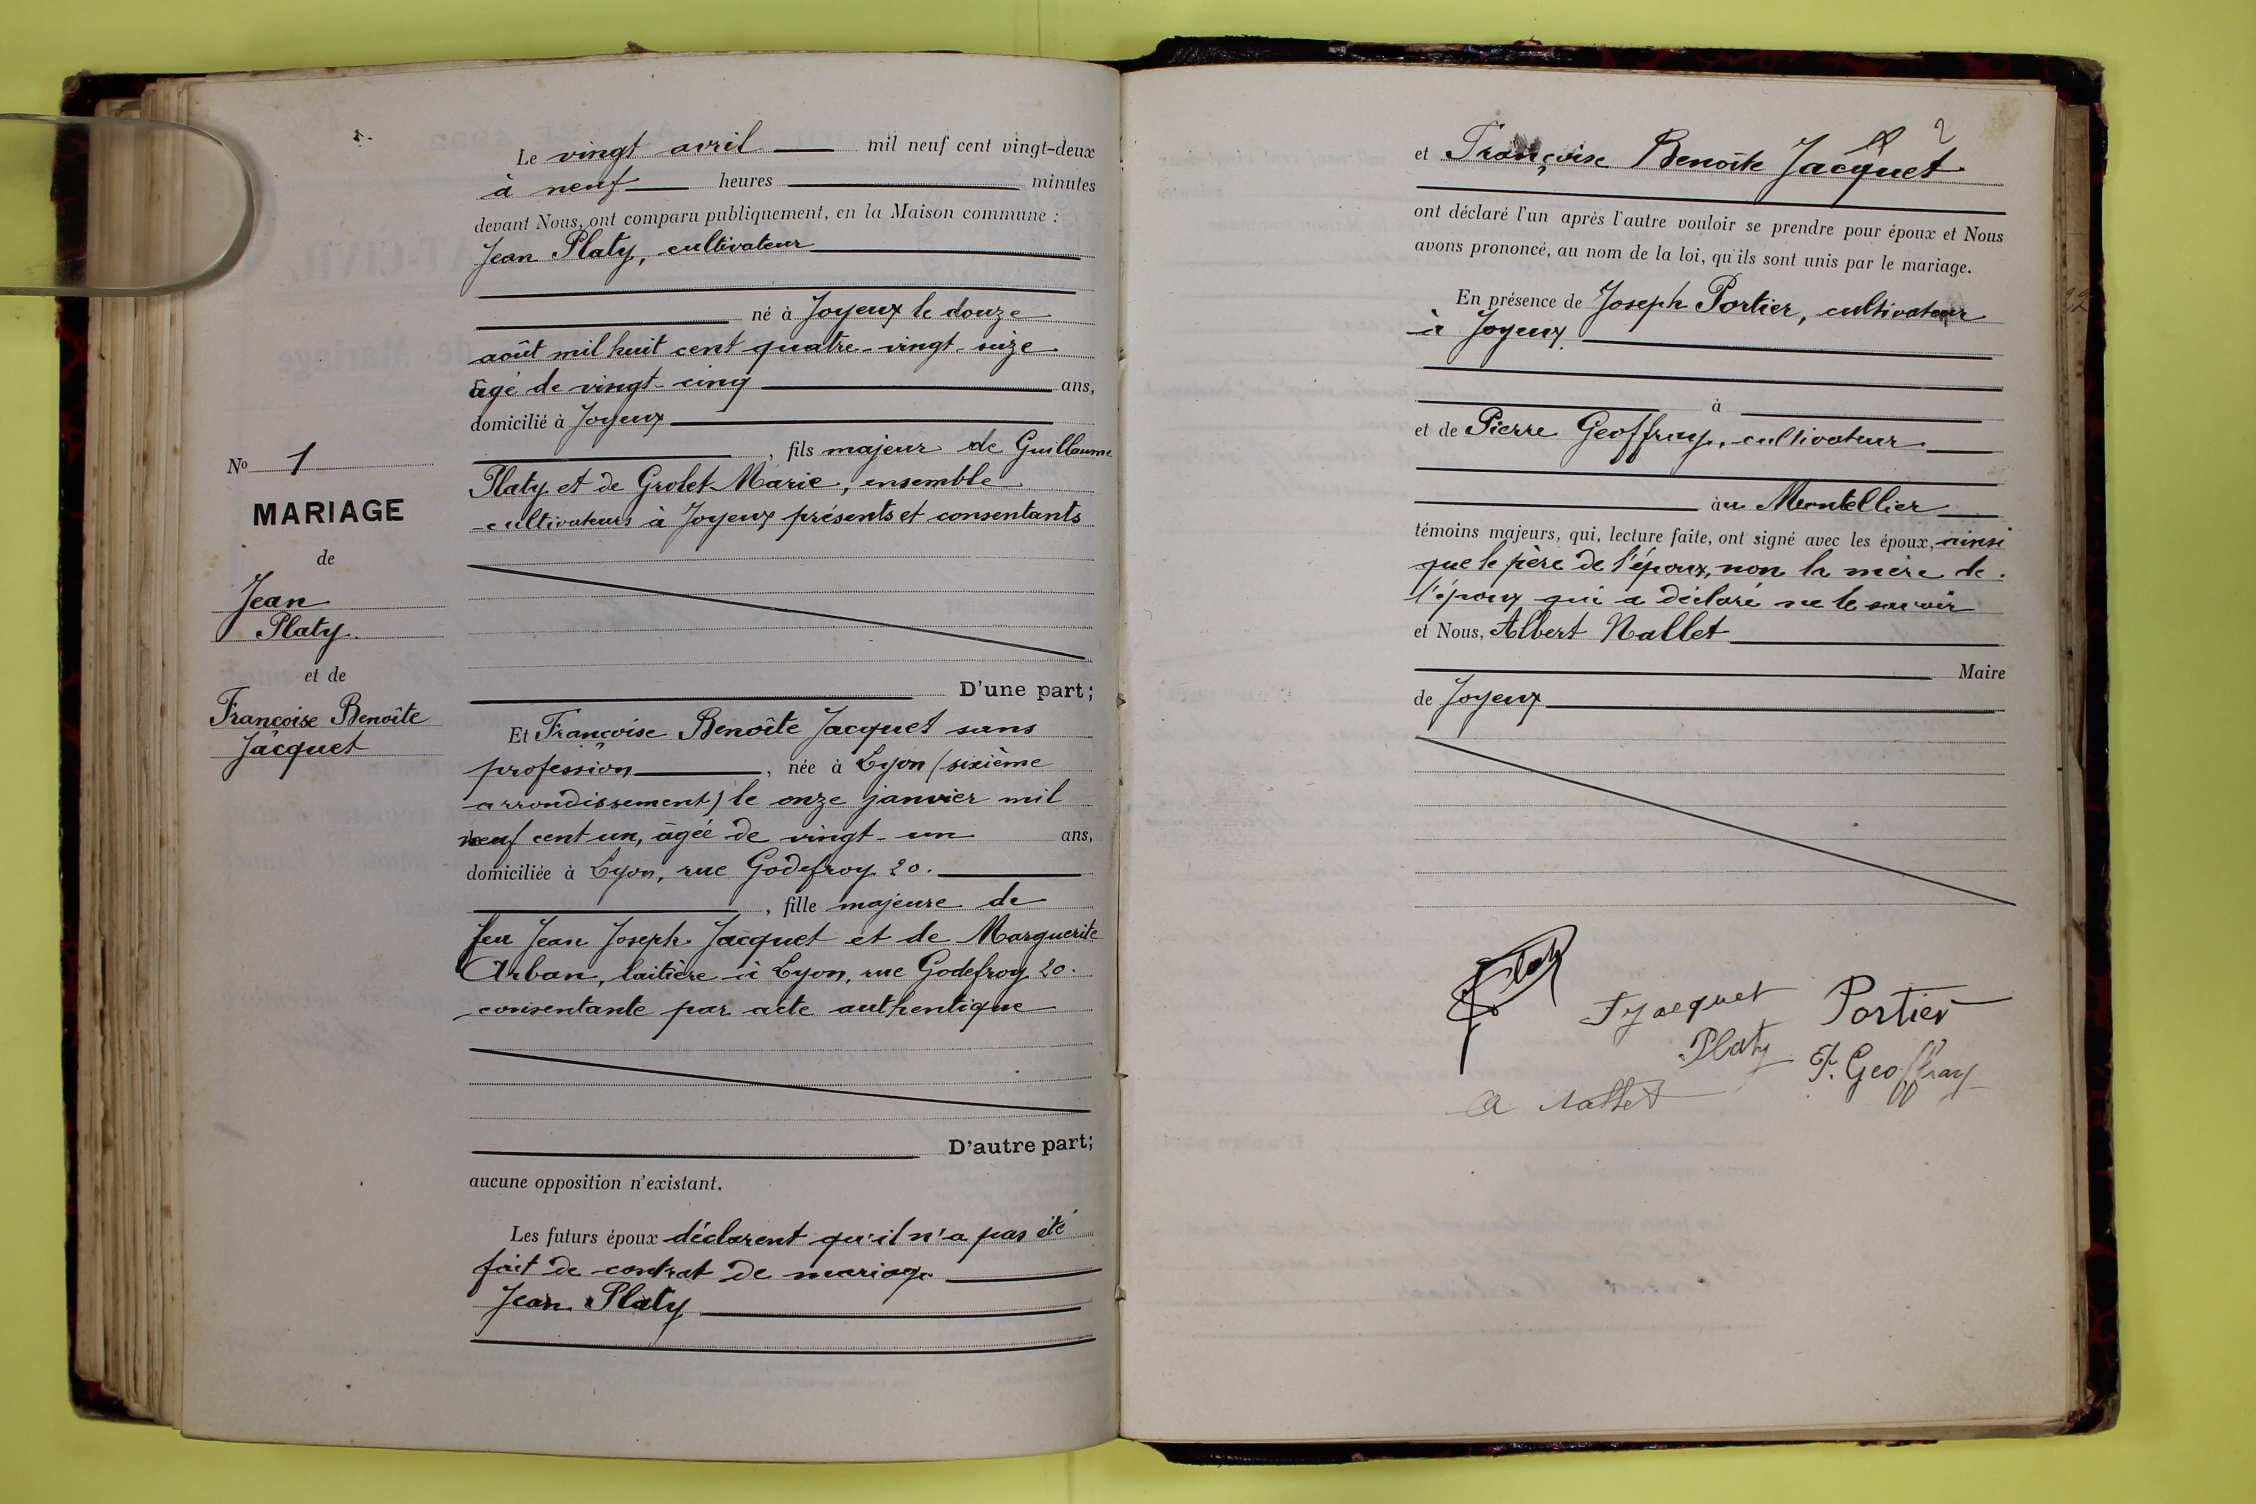 Le vingt avril mil neuf cent vingt-deux
à neuf heures minutes
devant Nous, ont comparu publiquement, en la Maison commune :
Jean Platy, cultivateur
né à Joyeux le douze
août mil huit cent quatre-vingt-seize
âgé de vingt-cinq ans,
domicilié à Joyeux
, fils majeur de Guillaume
Platy et de Grolet Marie, ensemble
cultivateurs à Joyeux présents et consentants
D'une part;
Et Françoise Benoîte Jacquet sans
profession, née à Lyon (sixième
arrondissement) le onze janvier mil
neuf cent un, âgée de vingt-un ans,
domiciliée à Lyon, rue Godefroy 20.
, fille majeure de
feu Jean Joseph Jacquet et de Marguerite
Arban, laitière à Lyon, rue Godefroy 20.
consentante par acte authentique
D'autre part;
aucune opposition n'existant.
Les futurs époux déclarent qu'il n'a pas été
fait de contrat de mariage
Jean Platy
No 1
MARIAGE
de
Jean
Platy.
et de
Françoise Benoîte
Jacquet
2
et Françoise Benoîte Jacquet
ont déclaré l'un après l'autre vouloir se prendre pour époux et Nous
avons prononcé, au nom de la loi, qu'ils sont unis par le mariage.
En présence de Joseph Portier, cultivateur
à Joyeux
à
et de Pierre Geoffray, cultivateur
au Montellier
témoins majeurs, qui, lecture faite, ont signé avec les époux, ainsi
que le père de l'époux, non la mère de
l'époux qui a déclaré ne le savoir
et Nous, Albert Nallet
Maire
de Joyeux
Platy
F Jacquet
Portier
Platy
P. Geoffray
A Nallet